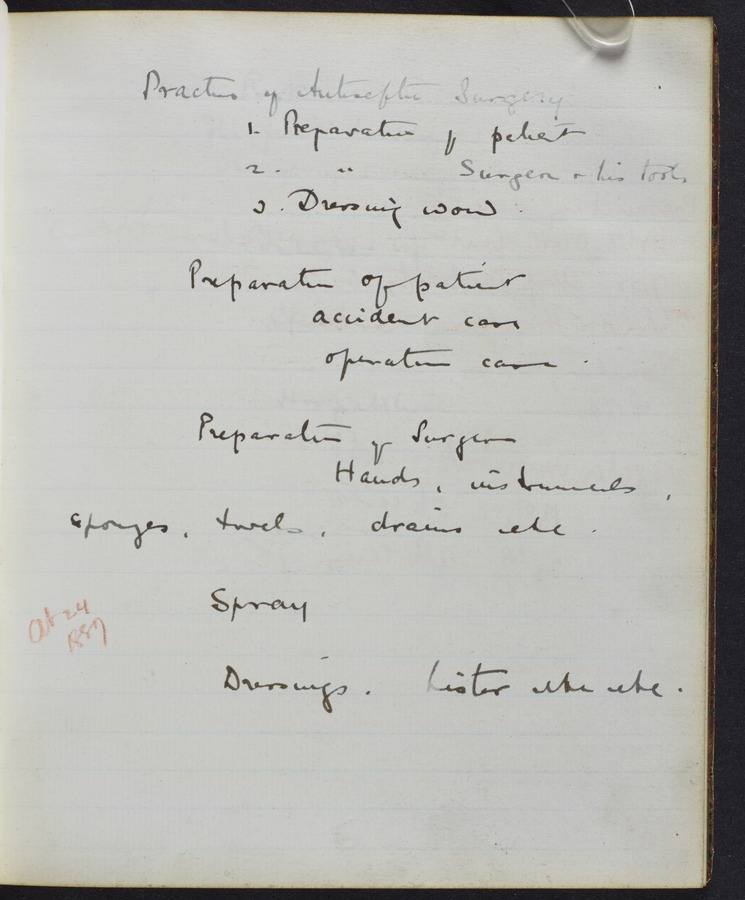 Practice of Antiseptic Surgery
1. Preparation of patient
2. " Surgeon & his tools
3. Dressing wound.
Preparation of patient
accident case
operation case.
Preparation of Surgeon
Hands, instruments,
sponges, towels, drains etc.
Spray
Oct 24
1887
Dressings. Lister etc etc.